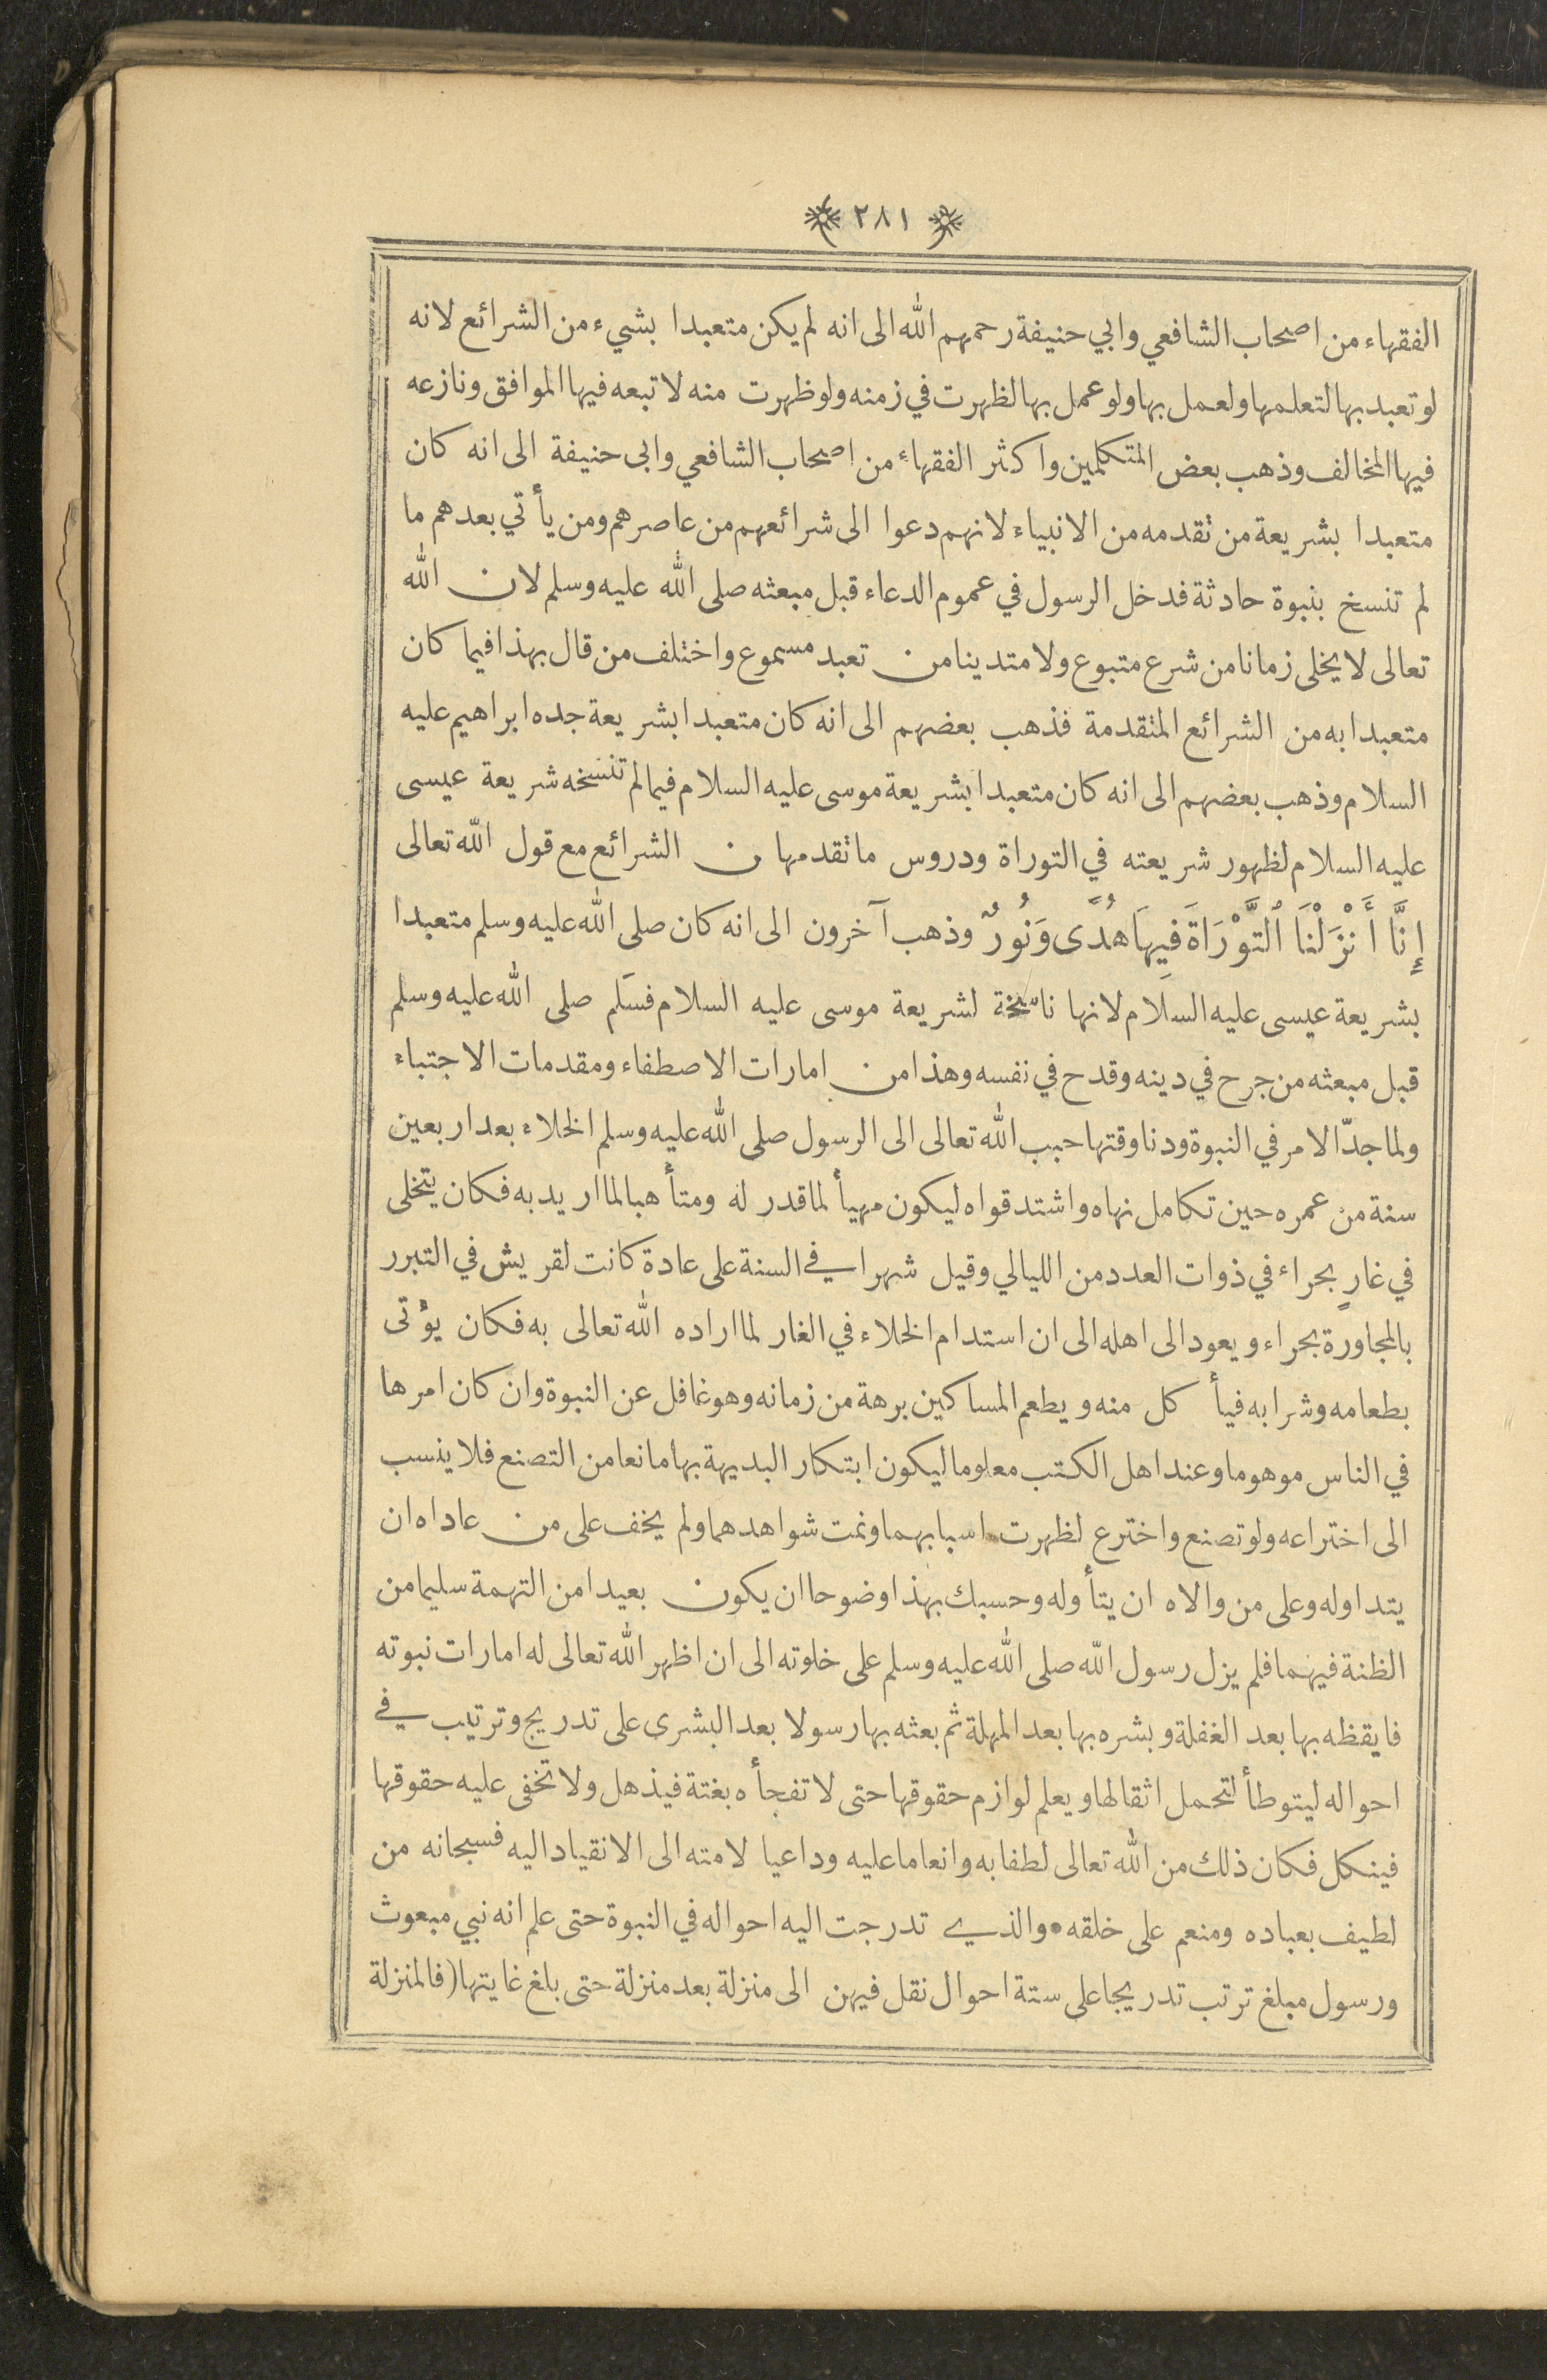 ﴿ ٢٨١ ﴾
الفقهاء من اصحاب الشافعي وابي حنيفة رحمهم الله الى انه لم يكن متعبدا بشيء من الشرائع لانه
لو تعبد بها لتعلمها ولعمل بها ولو عمل بها لظهرت في زمنه ولو ظهرت منه لاتبعه فيها الموافق ونازعه
فيها المخالف وذهب بعض المتكلمين واكثر الفقهاء من اصحاب الشافعي وابى حنيفة الى انه كان
متعبدا بشريعة من تقدمه من الانبياء لانهم دعوا الى شرائعهم من عاصرهم ومن يأتي بعدهم ما
لم تنسخ بنبوة حادثة فدخل الرسول في عموم الدعاء قبل مبعثه صلى الله عليه وسلم لان الله
تعالى لا يخلى زمانا من شرع متبوع ولا متدينا من تعبد مسموع واختلف من قال بهذا فيما كان
متعبدا به من الشرائع المتقدمة فذهب بعضهم الى انه كان متعبدا بشريعة جده ابراهيم عليه
السلام وذهب بعضهم الى انه كان متعبدا بشريعة موسى عليه السلام فيما لم تنسخه شريعة عيسى
عليه السلام لظهور شريعته في التوراة ودروس ما تقدمها من الشرائع مع قول الله تعالى
إِنَّا أَنْزَلْنَا ٱلتَّوْرَاةَ فِيهَا هُدًى وَنُورٌ وذهب آخرون الى انه كان صلى الله عليه وسلم متعبدا
بشريعة عيسى عليه السلام لانها ناسخة لشريعة موسى عليه السلام فسَلم صلى الله عليه وسلم
قبل مبعثه من جرح في دينه وقدح في نفسه وهذا من امارات الاصطفاء ومقدمات الاجتباء
ولما جدّ الامر في النبوة ودنا وقتها حبب الله تعالى الى الرسول صلى الله عليه وسلم الخلاء بعد اربعين
سنة من عمره حين تكامل نهاه واشتد قواه ليكون مهيأ لما قدر له ومتأهبا لما اريد به فكان يتخلى
في غارٍ بحراء في ذوات العدد من الليالي وقيل شهرا في السنة على عادة كانت لقريش في التبرر
بالمجاورة بحراء ويعود الى اهله الى ان استدام الخلاء في الغار لما اراده الله تعالى به فكان يؤتى
بطعامه وشرابه فيأكل منه ويطعم المساكين برهة من زمانه وهو غافل عن النبوة وان كان امرها
في الناس موهوما وعند اهل الكتب معلوما ليكون ابتكار البديهة بها مانعا من التصنع فلا ينسب
الى اختراعه ولو تصنع واخترع لظهرت اسبابهما ونمت شواهدهما ولم يخف على من عاداه ان
يتداوله وعلى من والاه ان يتأوله وحسبك بهذا وضوحا ان يكون بعيدا من التهمة سليما من
الظنة فيهما فلم يزل رسول الله صلى الله عليه وسلم على خلوته الى ان اظهر الله تعالى له امارات نبوته
فايقظه بها بعد الغفلة وبشره بها بعد المهلة ثم بعثه بها رسولا بعد البشرى على تدريج وترتيب في
احواله ليتوطأ لتحمل اثقالها ويعلم لوازم حقوقها حتى لا تفجأه بغتة فيذهل ولا تخفى عليه حقوقها
فينكل فكان ذلك من الله تعالى لطفا به وانعاما عليه وداعيا لامته الى الانقياد اليه فسبحانه من
لطيف بعباده ومنعم على خلقه • والذي تدرجت اليه احواله في النبوة حتى علم انه نبي مبعوث
ورسول مبلغ ترتب تدريجا على ستة احوال نقل فيهن الى منزلة بعد منزلة حتى بلغ غايتها (فالمنزلة